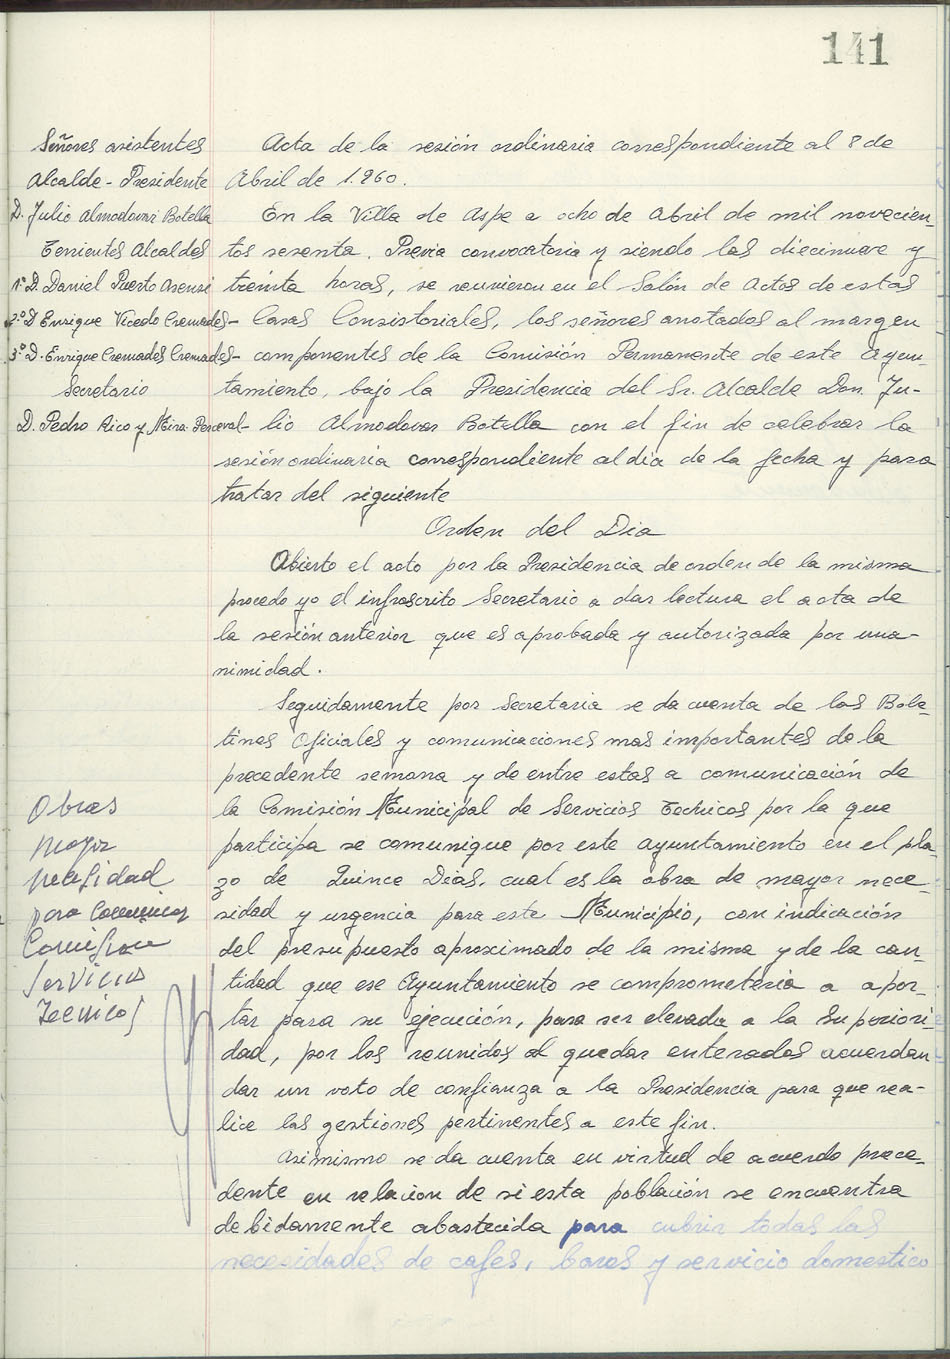 141
Señores asistentes
Alcalde-Presidente
D. Julio Almodovar Botella
Tenientes Alcaldes
1.º D. Daniel Puerto Asensi
2.º D Enrique Vicedo Cremades-
3.º D. Enrique Cremades Cremades-
Secretario
D. Pedro Rico y Mira-Perceval-
Acta de la sesión ordinaria correspondiente al 8 de
Abril de 1.960.
En la Villa de Aspe a ocho de Abril de mil novecien-
tos sesenta. Previa convocatoria y siendo las diecinueve y
treinta horas, se reunieron en el Salón de Actos de estas
Casas Consistoriales, los señores anotados al margen
componentes de la Comisión Permanente de este Ayun-
tamiento, bajo la Presidencia del Sr. Alcalde Don Ju-
lio Almodovar Botella con el fin de celebrar la
sesión ordinaria correspondiente al dia de la fecha y para
tratar del siguiente
Orden del Dia
Abierto el acto por la Presidencia de orden de la misma
procedo yo el infrascrito Secretario a dar lectura el acta de
la sesión anterior que es aprobada y autorizada por una-
nimidad.
Seguidamente por Secretaria se da cuenta de los Bole-
tines Oficiales y comunicaciones mas importantes de la
precedente semana y de entre estas a comunicación de
la Comisión Municipal de Servicios Tecnicos por la que
participa se comunique por este Ayuntamiento en el pla-
zo de Quince Dias, cual es la obra de mayor nece-
sidad y urgencia para este Municipio, con indicación
del presupuesto aproximado de la misma y de la can-
tidad que ese Ayuntamiento se comprometeria a apor-
tar para su ejecución, para ser elevada a la Superiori-
dad, por los reunidos al quedar enterados acuerdan
dar un voto de confianza a la Presidencia para que rea-
lice las gestiones pertinentes a este fin.
Asimismo se da cuenta en virtud de acuerdo prece-
dente en relacion de si esta población se encuentra
debidamente abastecida para cubrir todas las
necesidades de cafes, bares y servicio domestico
Obras
mayor
necesidad
para comunicar
Comision
Servicios
Tecnicos